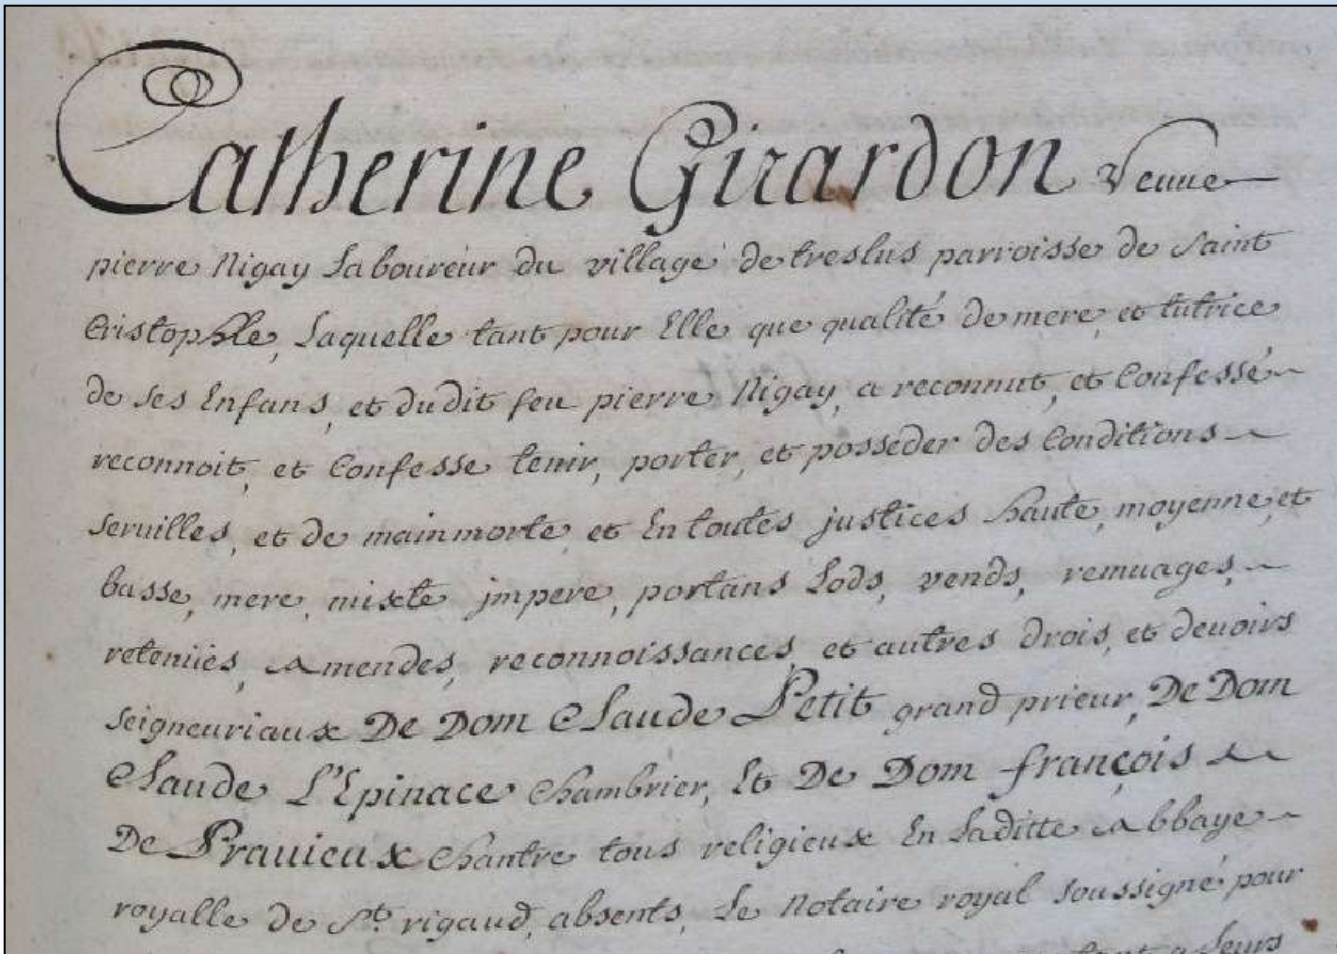 Catherine Girardon Veuue
pierre Nigay Laboureur du village de treslus parroisse de Saint
Cristophle, Laquelle tant pour Elle que qualité de mere, et tutrice
de ses Enfans, et dudit feu pierre Nigay, a reconnut, et Confessé
reconnoit, et Confesse tenir, porter, et posseder des Conditions
seruilles, et de mainmorte, et En toutes justices haute, moyenne, et
basse, mere, mixte jmpere, portans Lods, vends, remuages,
retenües, amendes, reconnoissances, et autres drois, et deuoirs
seigneuriaux De Dom Claude Petit grand prieur, De Dom
Claude L'Epinace Chambrier, Et De Dom françois
De Prauieux Chantre tous religieux En Laditte Abbaye
royalle de St. rigaud, absents, Le Notaire royal soussigné pour
a Leurs